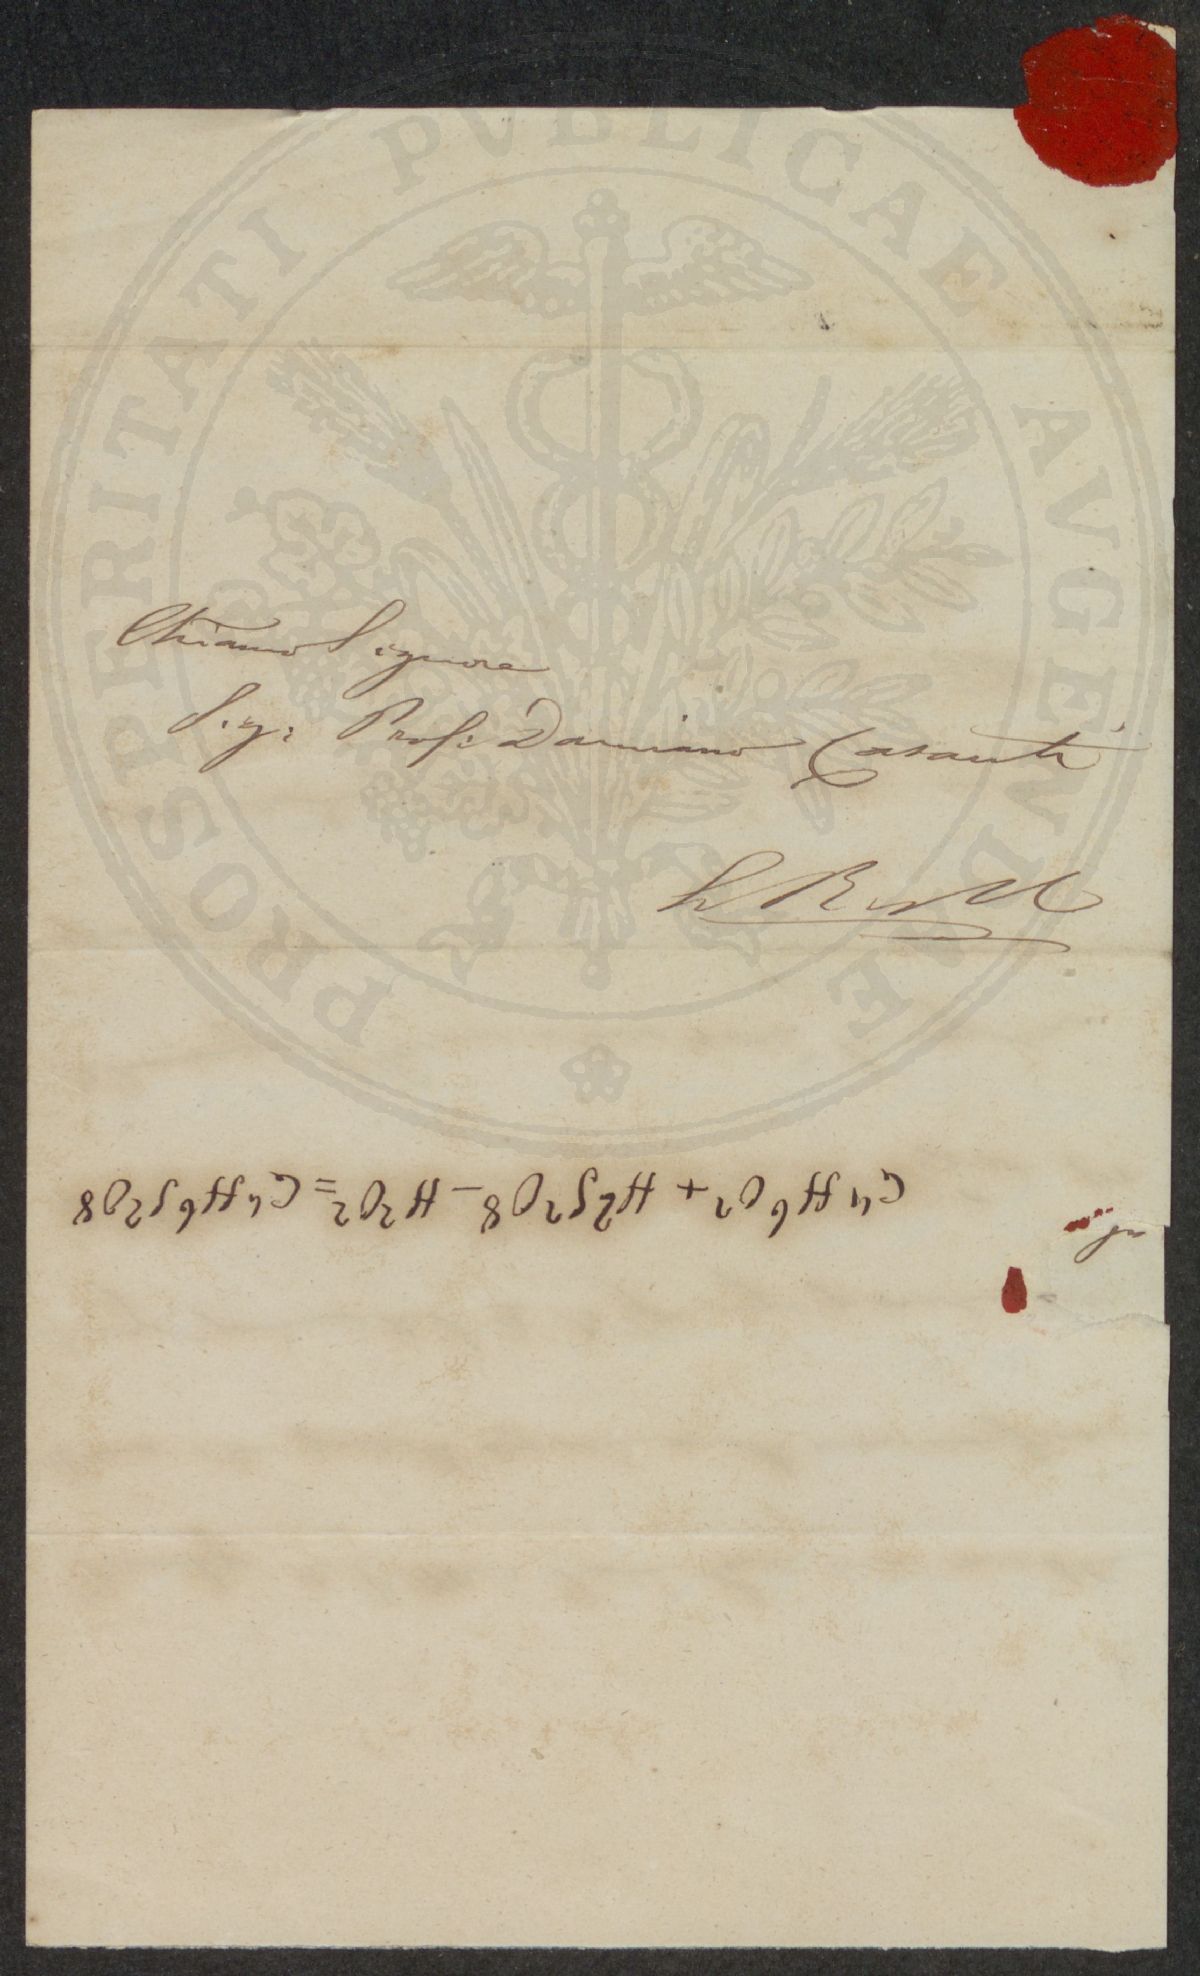 PROSPERITATI PVBLICAE AVGENDAE
Chiarmo Signore
Sig: Prof: Damiano Casanti
C4H6O2 + H2S2O8 - H2O2 = C4H6S2O8